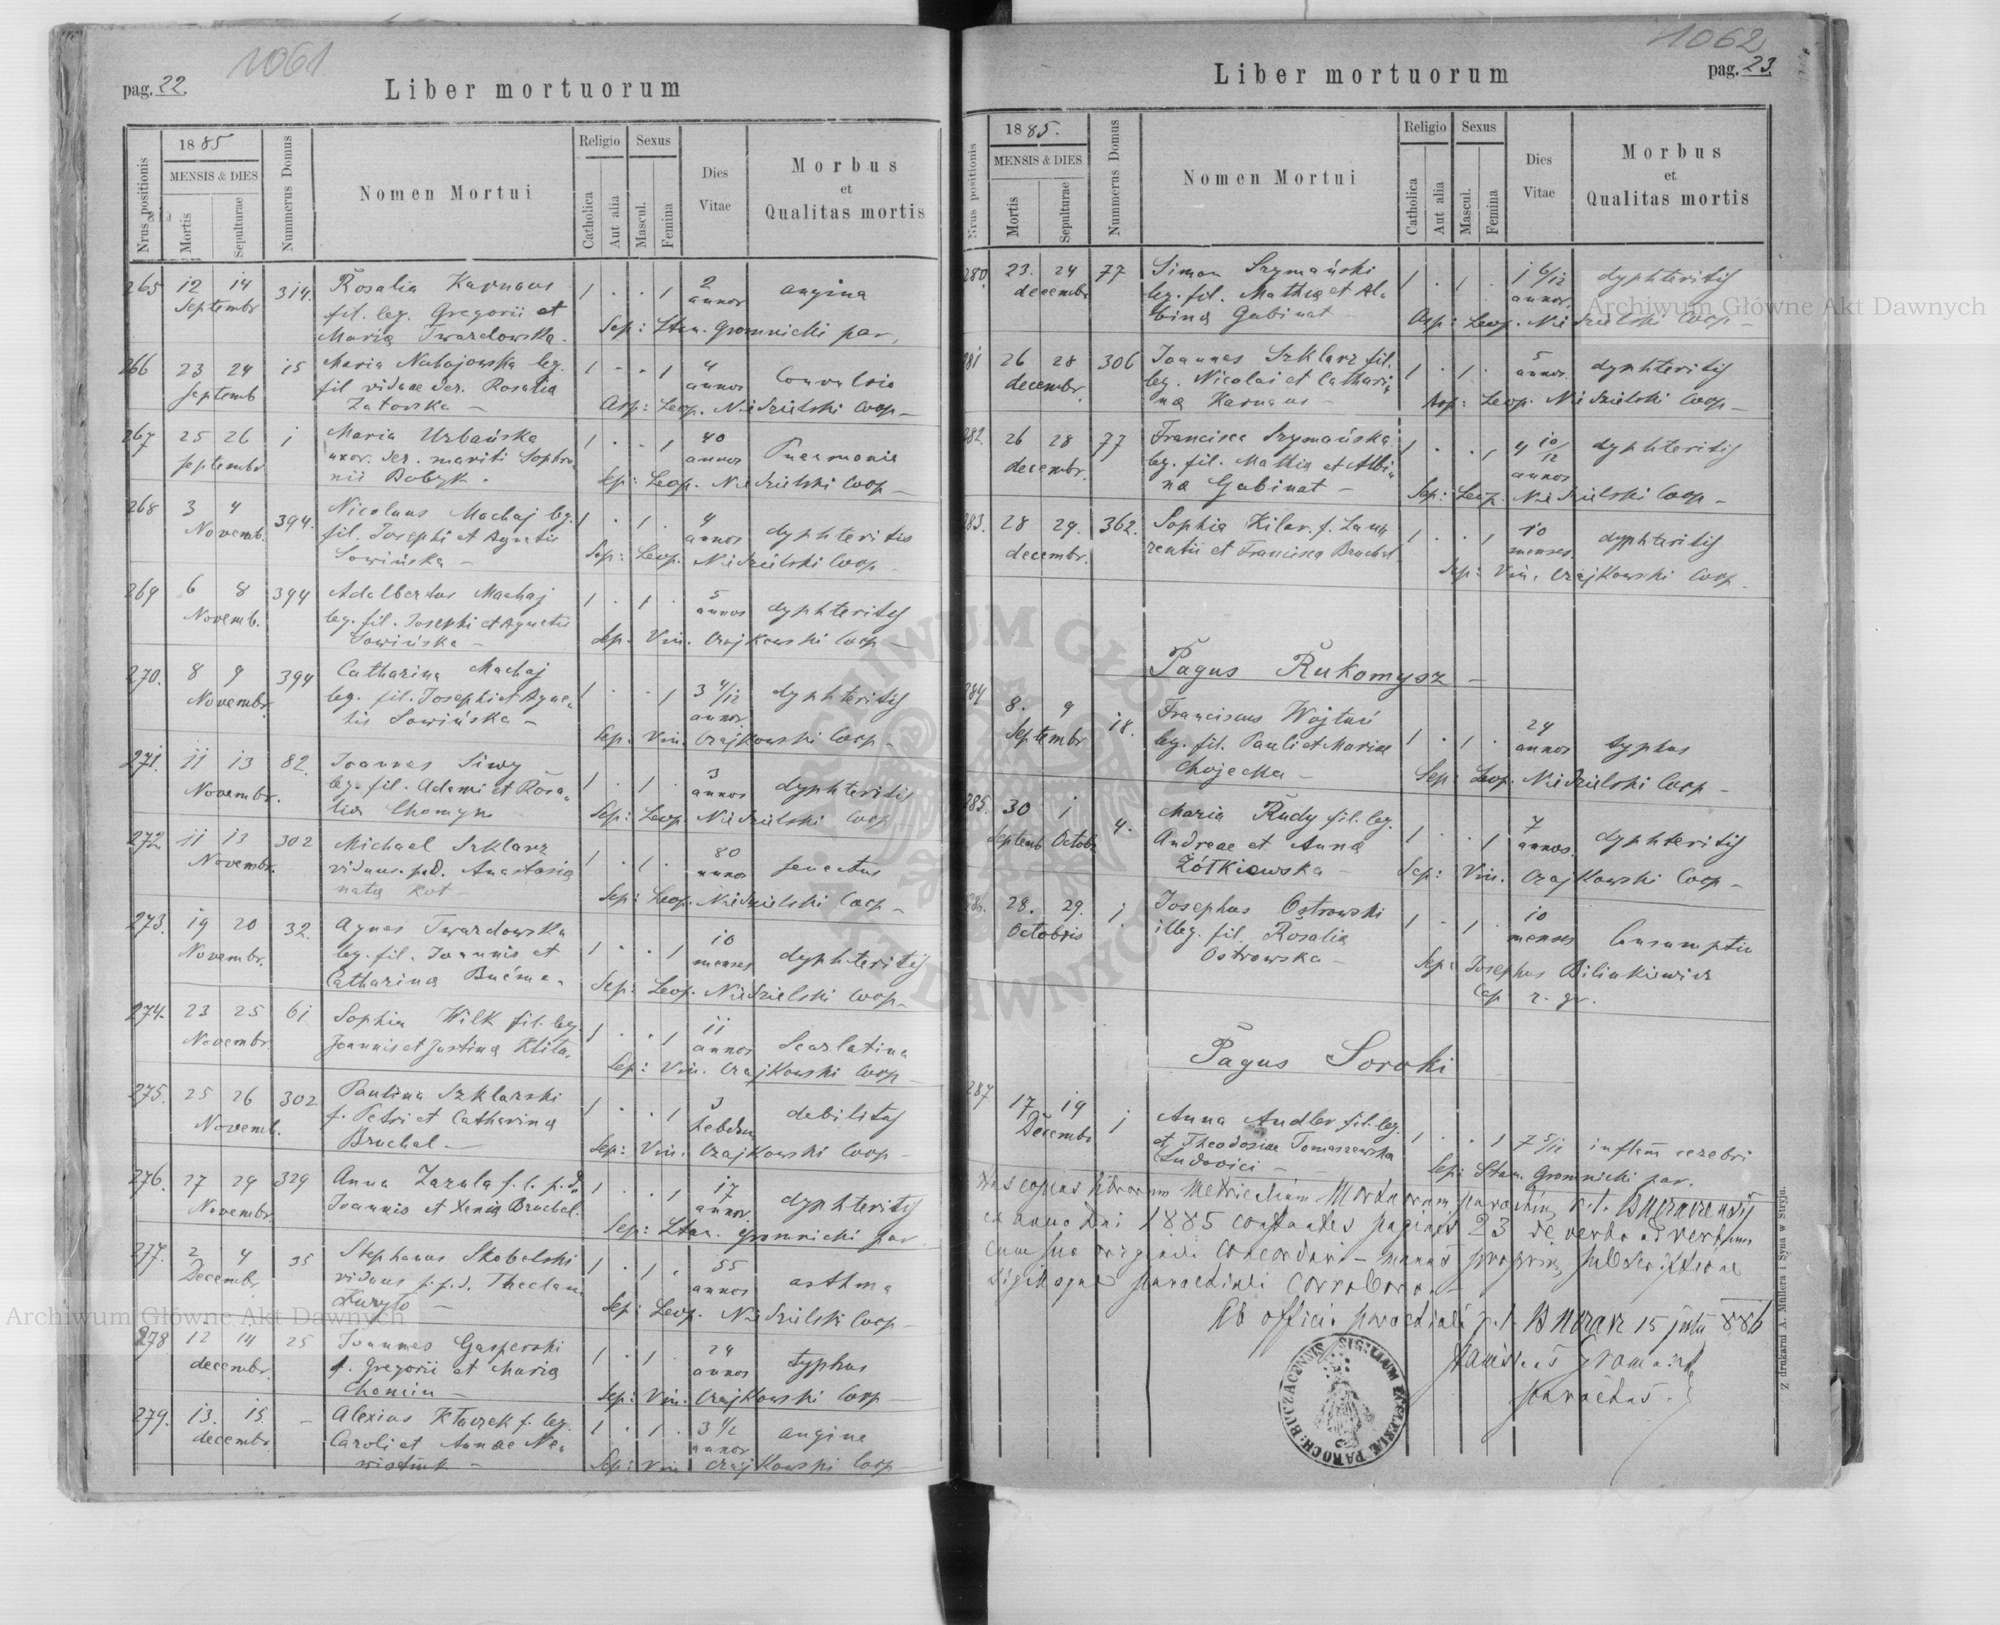 1061
pag. 22.
Liber mortuorum
Nrus positionis
1885
MENSIS & DIES
Mortis
Sepulturae
Nummerus Domus
Nomen Mortui
Religio
Catholica
Aut alia
Sexus
Mascul.
Femina
Dies
Vitae
Morbus
et
Qualitas mortis
265 12 14 314. Rosalia Karnaus 1 . . 1 2 angina
Septembr fil. leg. Gregorii et annor
Maria Twardowska. Sep: Stan. Gromnicki par.
266 23 24 15 Maria Nabajowska leg. 1 . . 1 4 Convulsio
Septemb fil viduae der. Rosalia annos
Zatorska – Asp: Leop. Niedzielski Coop –
267 25 26 1 Maria Urbańska 1 . . 1 40 Pneumonia
Septembr uxor. der. mariti Sophro annos
nii Bobyk. Sep: Leop. Niedzielski Coop –
268 3 4 394. Nicolaus Machaj leg. 1 . 1 . 4 dyphteritis
Novemb. fil. Josephi et Agnetis annos
Sowińska – Sep: Leop. Niedzielski Coop –
269 6 8 394 Adalbertus Machaj 1 . 1 . 5 dyphteritis
Novemb. leg. fil. Josephi et Agnetis annos
Sowińska – Sep. Vin. Czajkowski Coop –
270. 8 9 394 Catharina Machaj 1 . . 1 3 4/12 dyphteritis
Novembr. leg. fil. Josephi et Agne- annor
tis Sowińska – Sep: Vin. Czajkowski Coop –
271. 11 13 82. Joannes Siwy 1 . 1 . 3 dyphteritis
Novembr. leg. fil. Adami et Rosa- annos
lia Chomyn Sep: Leop. Niedzielski Coop
272 11 13 302 Michael Szklarz 1 . 1 . 80 senectus
Novembr. viduus. p.d. Anastasia annos
nata Kot – Sep: Leop. Niedzielski Coop –
273. 19 20 32. Agnes Twardowska 1 . . 1 10 dyphteritis
Novembr. leg. fil. Joannis et menses
Catharina Sep: Leop. Niedzielski Coop –
274. 23 25 61 Sophia Wilk fil. leg 1 . . 1 11 Scarlatina
Novembr. Joannis et Justina Klita. annos
Sep: Vin. Czajkowski Coop –
275. 25 26 302 Paulina Szklarski 1 . . 1 3 debilitas
Novemb. f. Petri et Catharina
Bruchal – Sep: Vin. Czajkowski Coop –
276. 27 29 329 Anna Zazula f. l. p.d. 1 . . 1 17 dyphteritis
Novembr. Joannis et Xenia Bruchal. annor
Sep: Stan. Gromnicki par.
277. 2 4 35 Stephanus Skobelski 1 . 1 . 55 asthma
Decembr viduus p.p.d. Theclam annos
Kuryło – Sep: Leop. Niedzielski Coop –
278 12 14 25 Joannes Gasperski 1 . 1 . 24 typhus
decembr. f. Gregorii et Maria annos
Chomin – Sep: Vin. Czajkowski Coop –
279. 13. 15. – Alexius Kłaczek f. leg. 1 . 1 . 3 1/2 angina
decembr. Caroli et Annae Ne- annor
Sep: Vin Czajkowski Coop
1062
pag. 23.
Liber mortuorum
Nrus positionis
1885.
MENSIS & DIES
Mortis
Sepulturae
Nummerus Domus
Nomen Mortui
Religio
Catholica
Aut alia
Sexus
Mascul.
Femina
Dies
Vitae
Morbus
et
Qualitas mortis
280. 23. 24 77 Simon Szymański 1 . 1 . 1 6/12 dyphteritis
decembr leg. fil. Mathia et Al- annor.
bina Gabinat – Asp: Leop. Niedzielski Coop –
281 26 28 306 Joannes Szklarz fil. 1 . 1 . 5 dyphteritis
decembr. leg. Nicolai et Cathari- annor.
na Karnaus – Asp: Leop. Niedzielski Coop –
282. 26 28 77 Francisca Szymańska 1 . . 1 4 10/12 dyphteritis
decembr. leg. fil. Mathia et Albi- annos
na Gabinat – Sep: Leop. Niedzielski Coop –
283. 28 29. 362. Sophia Kilar. f. Lau- 1 . . 1 10 dyphteritis
decembr. rentii et Francisca Bruchal menses.
Sep: Vin. Czajkowski Coop –
Pagus Rukomysz –
284 8. 9 18. Franciscus Wojtuń 1 . 1 . 24 typhus
Septembr leg. fil. Pauli et Mariae annos
Chojecka – Sep: Leop. Niedzielski Coop –
285. 30 1 4. Maria Rudy fil. leg. 1 . . 1 7 dyphteritis
Septemb Octobr Andreae et Anna annos.
Żółkiewska – Sep: Vin. Czajkowski Coop –
286. 28. 29. 1. Josephus Ostrowski 1 . 1 . 10 Consumptio
Octobris illeg. fil. Rosalia menses
Ostrowska – Sep: Josephus Bilinkiewicz
Cap r. gr.
Pagus Soroki
287 17 19 1 Anna Andler fil. leg. 1 . . 1 7 5/12 inflam cerebri
Decembr et Theodosiae Tomaszewska
Ludovici – – Sep: Stan. Gromnicki par.
Has copias librorum Metricalium Mortuorum paroch. r. l. Buczacensis
ex anno Dni 1885 constantes paginis 23 de verbo ad verbum
cum suo originali concordari – manus propria subscriptione
sigilloque parochiali corroboro –
Ab officio parochiali r. l. Buczacz 15 julii 886
Stanislaus Gromnicki
parochus.
SIGILLUM ECCLESIÆ PAROCH: BUCZACENNIS
Z drukarni A. Müllera i Syna w Stryju.
Archiwum Główne Akt Dawnych
Archiwum Główne Akt Dawnych
ARCHIWUM GŁÓWNE AKT DAWNYCH